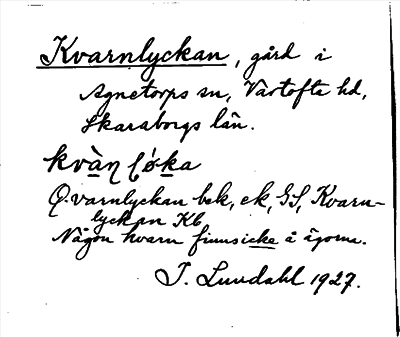 Kvarnlyckan, gård i
Agnetorps sn, Vartofta hd,
Skaraborgs län.
kvàn
Qvarnlyckan bok, ek, GS, Kvarn-
lyckan Kb
Någon kvarn finns icke å ägorna.
J. Lundahl 1927.